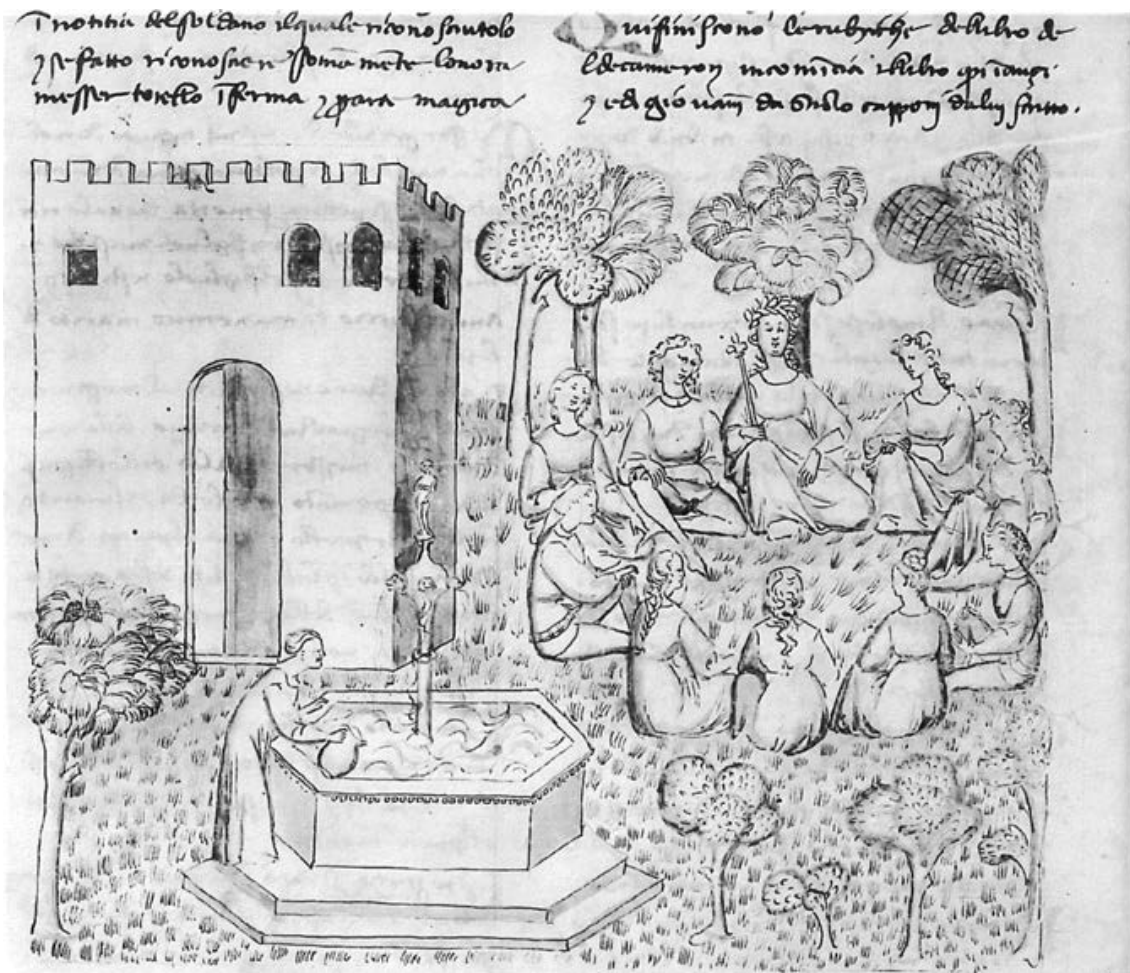 ī notitia del soldano ilquale riconosciutolo
⁊ se fatto riconoscere somāmēte lonora
messer torello īferma ⁊ p arte magica
Qui finiscono le rubriche delibro de
ldecameron incomīcia illibro
⁊ e di giovani dagnolo capponi dalui scritto.